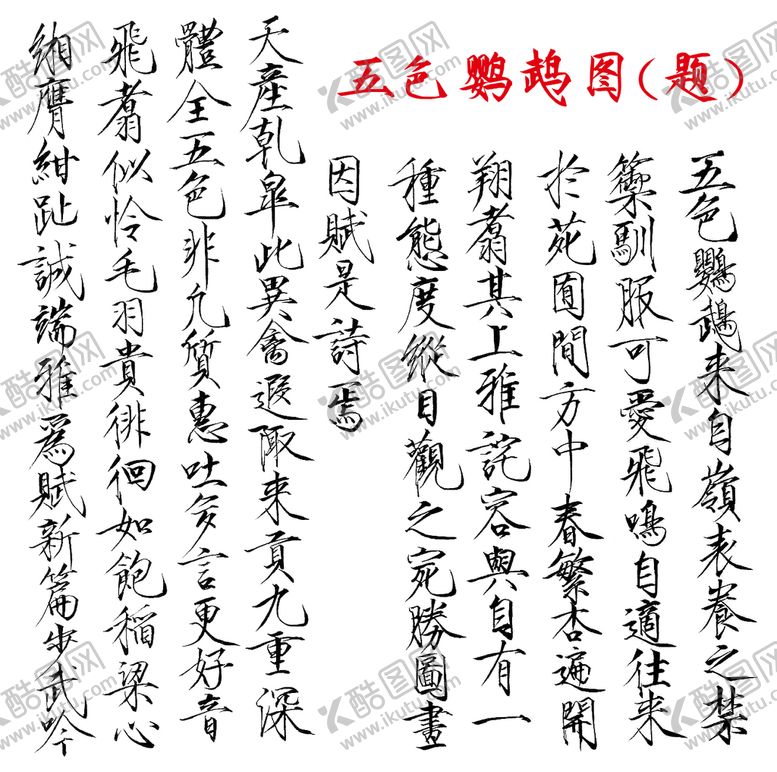 五色鹦鹉图(题)
五色鸚鵡来自嶺表養之禁
籞馴服可愛飛鳴自適往来
於苑囿間方中春繁杏遍開
翔翥其上雅詫容與自有一
種態度縱目觀之宛勝圖畫
因賦是詩焉
天産乾皐此異禽遐陬来貢九重深
體全五色非凡質惠吐多言更好音
飛翥似怜毛羽貴徘徊如飽稻梁心
緗膺紺趾誠端雅爲賦新篇步武吟
酷图网
www.ikutu.com